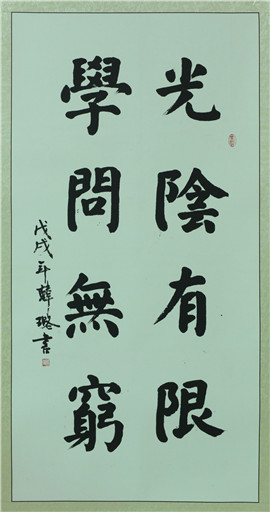 光陰有限
學問無窮
戊戌年韓璐書